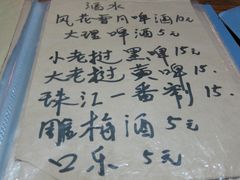 酒水
风花雪月啤酒10元
大理啤酒5元
小老挝黑啤15元
大老挝黄啤15.
珠江一番榨15.
雕梅酒5元
口乐5元